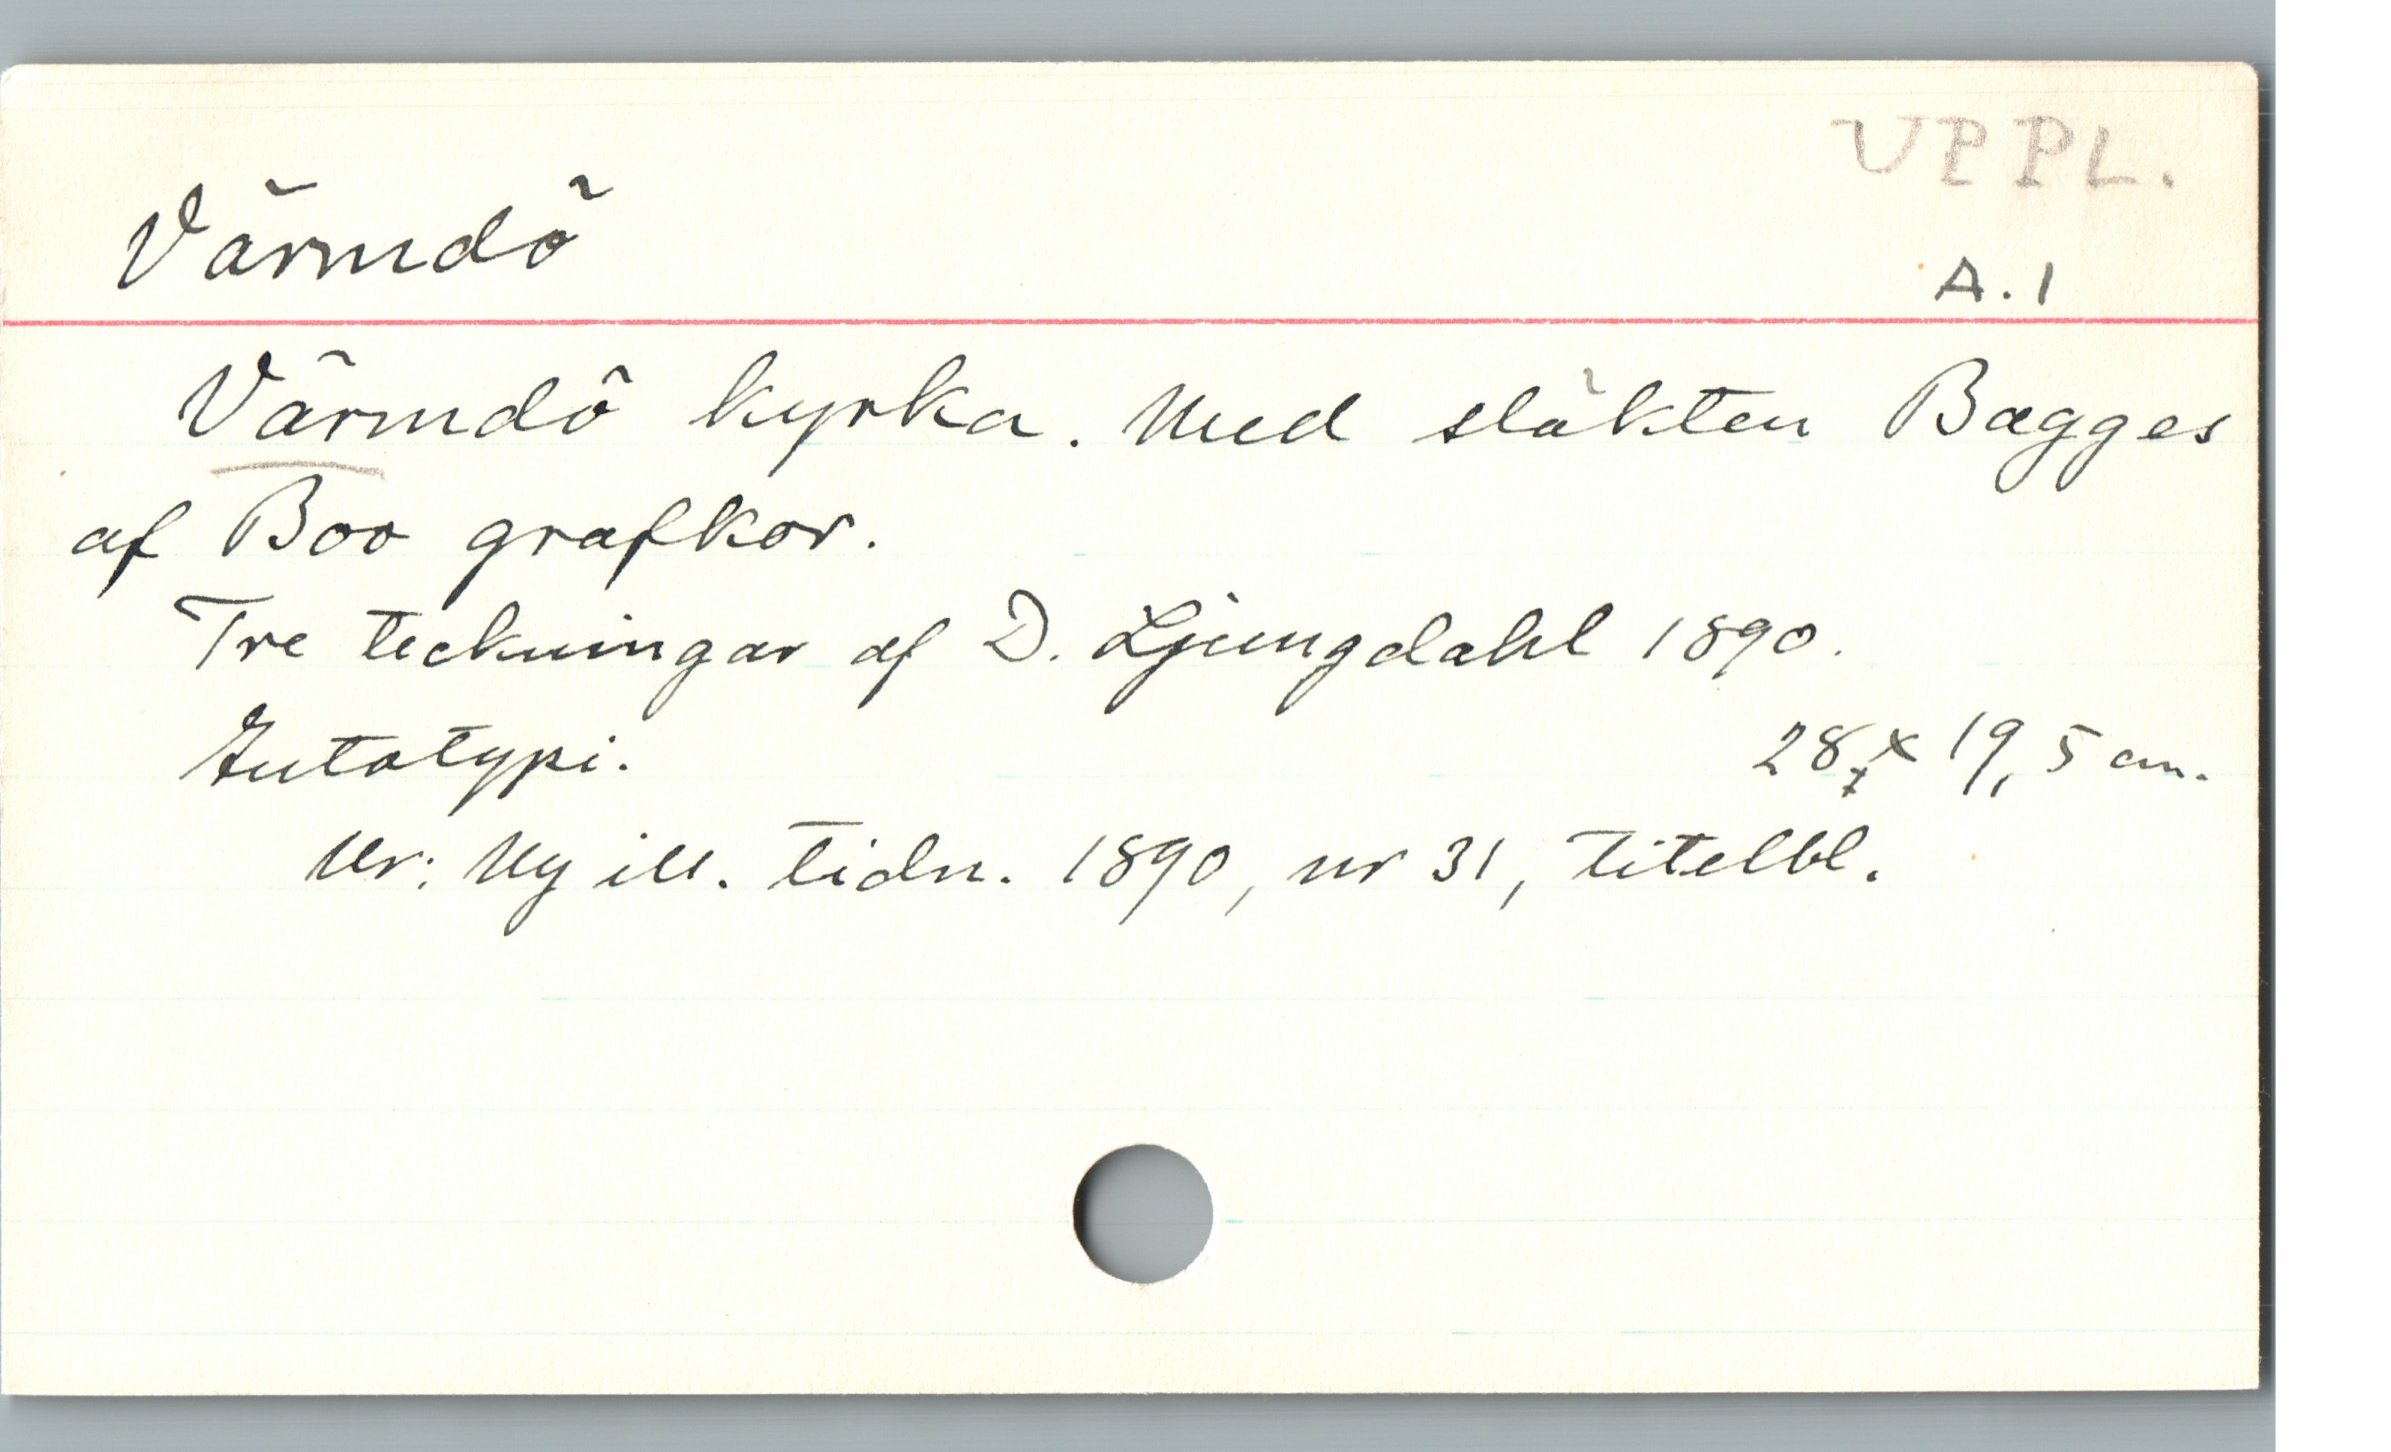 UPPL.
Värmdö
A.1
Värmdö kyrka. Med släkten Bagges
af Boo grafkor.
Tre teckningar af D. Ljungdahl 1890.
Autotypi. 28 x 19,5 cm.
Ur: Ny ill. tidn. 1890, nr 31, titelbl.